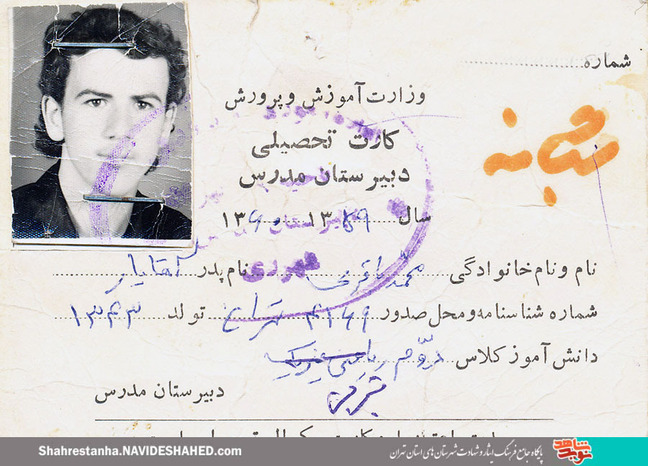 شماره
وزارت آموزش و پرورش
شبانه
کارت تحصیلی
دبیرستان مدرس
سال ۱۳۵۹ ۱۳۶۰
نام و نام خانوادگی محمد باقر نام پدر آقایار
شماره شناسنامه و محل صدور ۴۱۴۹ تولد ۱۳۴۳
دانش آموز کلاس دوم ریاضی فیزیک
دبیرستان مدرس
Shahrestanha.NAVIDESHAHED.com
پایگاه جامع فرهنگ ایثار و شهادت شهرستان های استان تهران
نوید شاهد